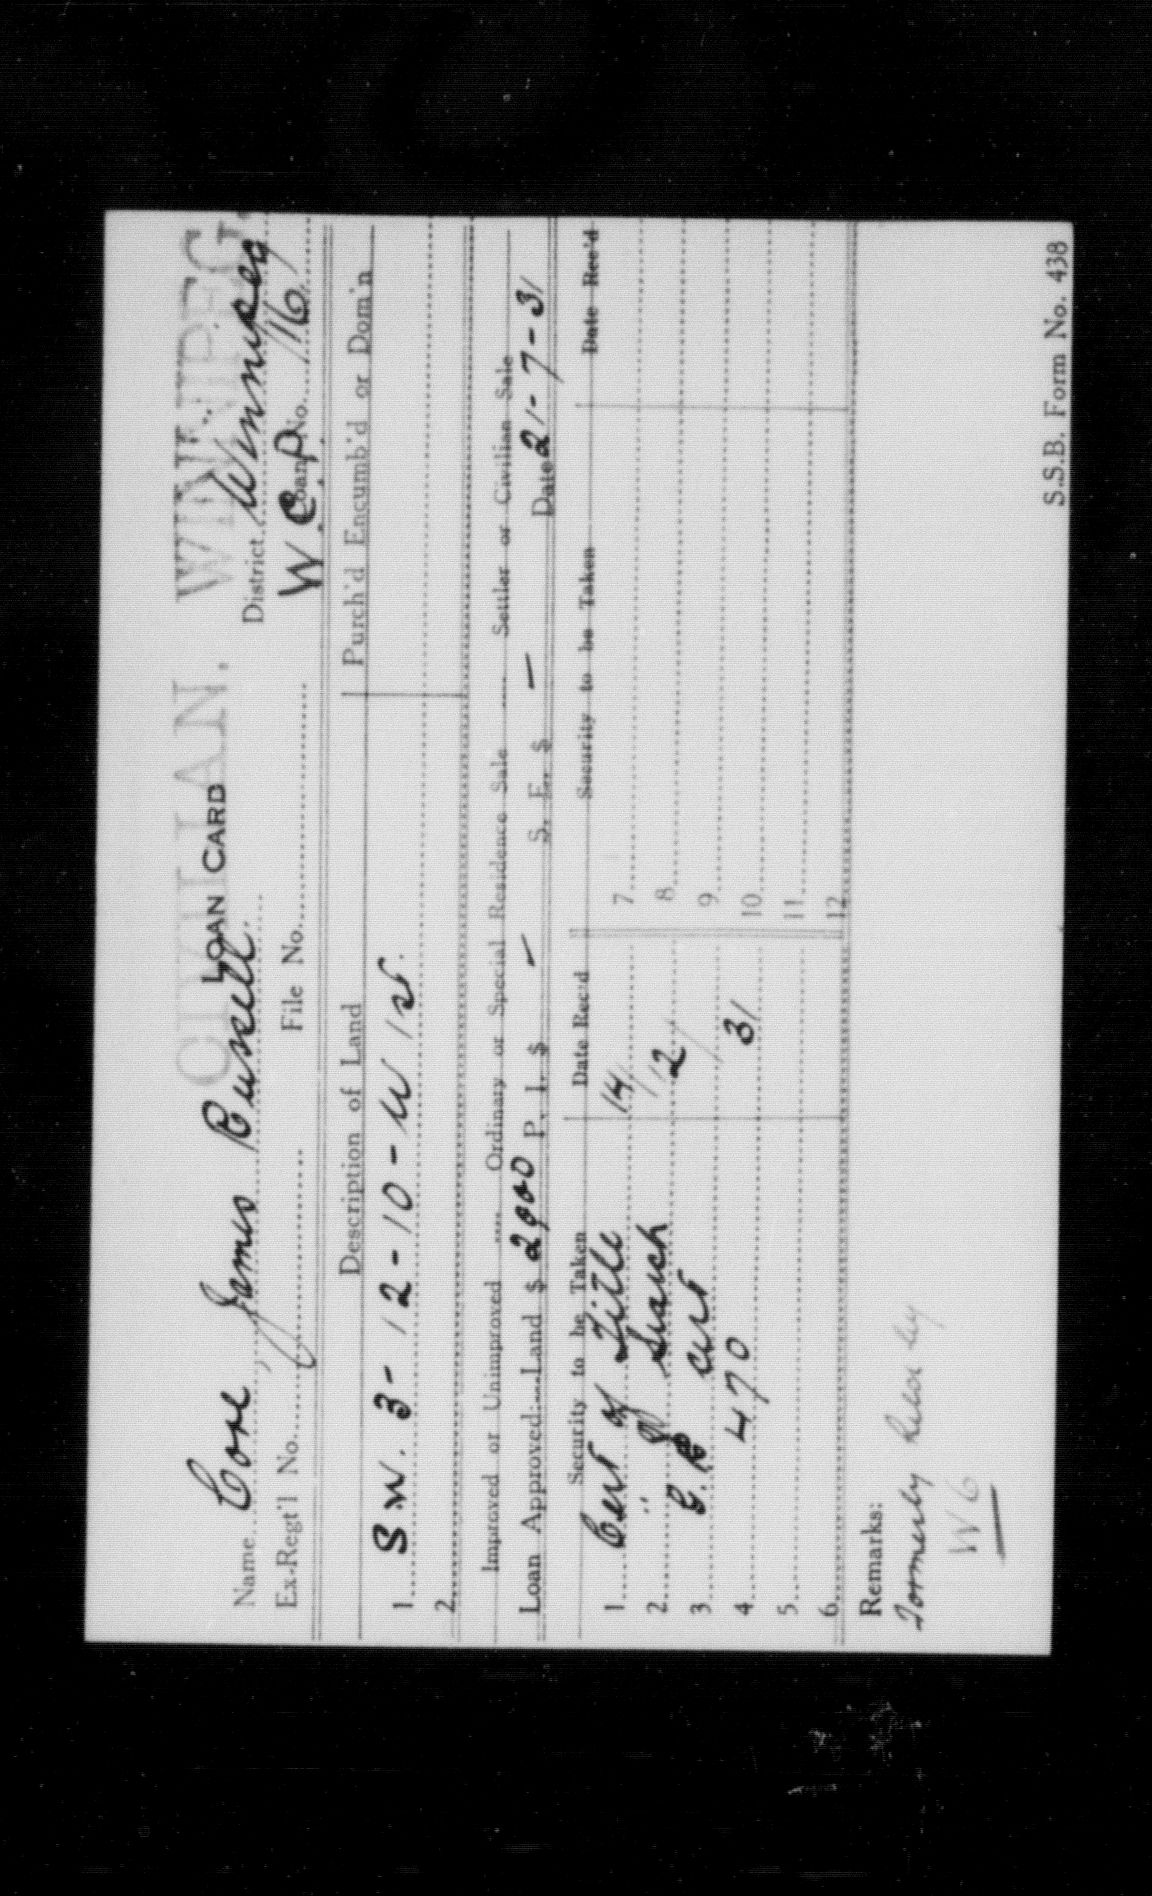 CIVILIAN. WINNIPEG.
LOAN CARD
Name Core, James Russell. District Winnipeg
Ex-Regt'l No. File No. Loan No. 116
W.C.P.
Description of Land Purch'd Encumb'd or Dom'n
1 S.W. 3-12-10-W 1st.
2
Improved or Unimproved .... Ordinary or Special Residence Sale .... Settler or Civilian Sale
Loan Approved:—Land $ 2000 P. I. $ — S. E. $ — Date 21-7-31
Security to be Taken Date Rec'd Security to be Taken Date Rec'd
1 Cert of Title 14/ 7
2 " of Search /12/ 8
3 C.R. cert 9
4 470 31 10
5 11
6 12
Remarks:
Formerly by
W6
S.S.B. Form No. 438